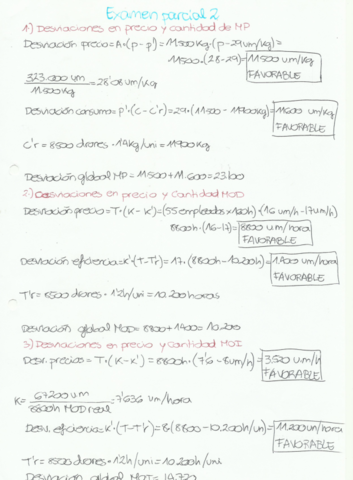 Examen parcial 2
1) Desviaciones en precio y cantidad de MP
Desviación precio = A·(p-p') = 11500kg·(p-29um/kg) =
11500·(28-29) = 11500 um/kg
FAVORABLE
323.000 um
11500kg
= 28'08 um/kg
Desviación consumo = p'·(c-c'r) = 29·(11500-11900kg) = 11600 um/kg
FAVORABLE
C'r = 8500 drones · 1'4kg/uni = 11900kg
Desviación global MP = 11500 + 11.600 = 23.100
2) Desviaciones en precio y cantidad MOD
Desviación precio = T·(K-K') = (55 empleados × 160h)·(16 um/h - 17um/h)
8800h·(16-17) = 8800 um/hora
FAVORABLE
Desviación eficiencia = K'(T-Tr) = 17·(8800h-10.200h) =
um/hora
FAVORABLE
T'r = 8500 drones · 1'2h/uni = 10.200 horas
Desviación global MOD = 8800 + 1400 = 10.200
3) Desviaciones en precio y cantidad MOI
Desv. precios = T·(K-K') = 8800h·(7'6-8um/h) = 3.520 um/h
FAVORABLE
K = 67200 um
8800h MOD real
= 7'636 um/hora
Desv. eficiencia = K'·(T-T'r) = 8(8800-10.200h/un) = 11.200 um/hora
FAVORABLE
T'r = 8500 drones · 1'2h/uni = 10.200h/uni
Desviación global MOI = 14.720